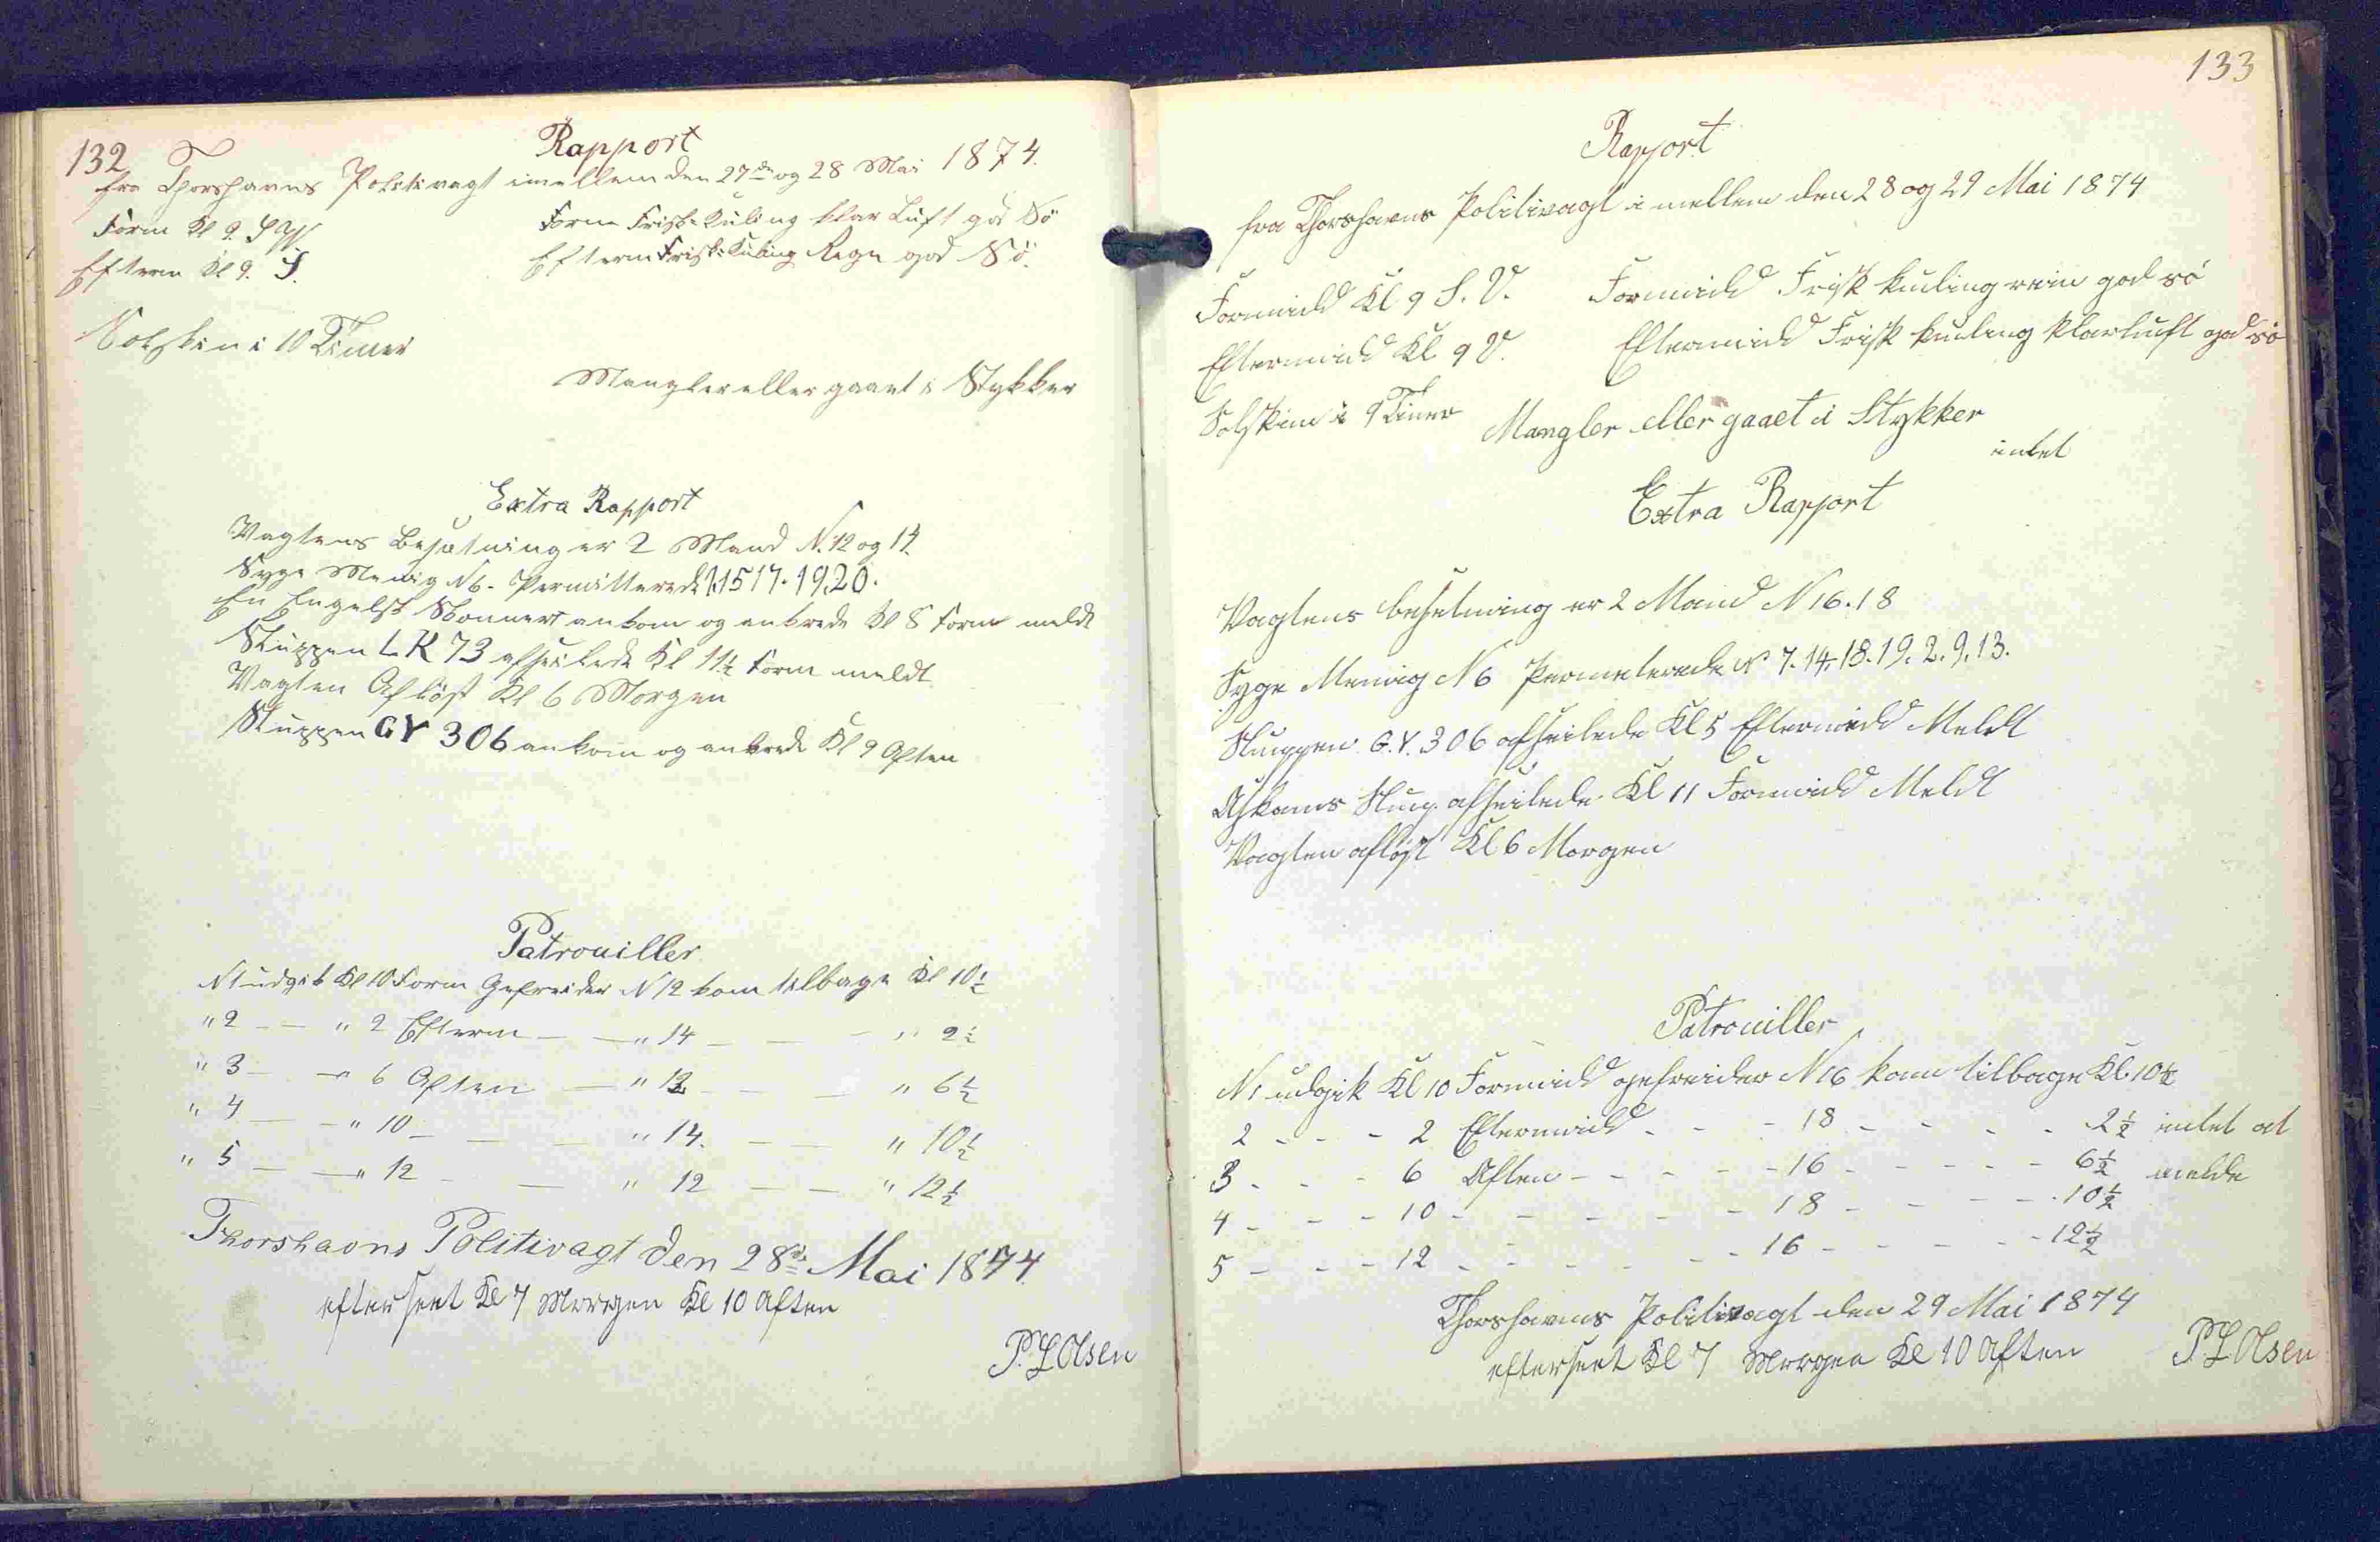 132
Rapport
fra Thorshavns Politivagt imellem den 27de og 28 Mai 1874.
Form Kl 9. S W Form Frisk Kuling klar Luft god Sö
Efterm Kl 9. S. Efterm Frisk Kuling Regn god Sö.
Solskin i 10 Timer
Mangler eller gaaet i Stykker
Extra Rapport
Vagtens Besætning er 2 Mand N. 12 og 14.
Syge Menig N 6. Permitterede N. 15 17. 19. 20.
En Engelsk Skonnert ankom og ankrede Kl 8 Form meldt
Sluppen LK 73 afseilede Kl 11½ Form meldt
Vagten Aflöst Kl 6 Morgen
Sluppen GY 306 ankom og ankrede Kl 9 Aften
Patrouiller
N 1 udgik Kl 10 Form Gefreider N 12 kom tilbage Kl 10½
" 2 — — " 2 Efterm — — " 14 — — — " 2½
" 3 — — " 6 Aften — " 12 — — — " 6½
" 4 — — " 10 — — — " 14. — — " 10½
" 5 — — " 12 — — " 12 — — " 12½
Thorshavns Politivagt den 28de Mai 1874
efterseet Kl 7 Morgen Kl 10 Aften
P. L Olsen
133
Rapport
fra Thorshavns Politivagt i mellem den 28 og 29 Mai 1874
Formidd Kl 9 S. V. Formidd Frisk kuling rein god sö
Eftermidd Kl 9 V. Eftermidd Frisk kuling klarluft god sö
Solskin i 9 Timer
Mangler eller gaaet i Stykker
intet
Extra Rapport
Vagtens besetning er 2 Mand N 16. 18
Syge Menig N 6 Permeterede N 7. 14. 18. 19. 2. 9. 13.
Sluppen G. Y. 306 afseilede Kl 5 Eftermidd Meldt
Slup afseilede Kl 11 Formidd Meldt
Vagten aflöst Kl 6 Morgen
Patrouiller
N 1 udgik Kl 10 Formidd gefreider N 16 kom tilbage Kl. 10½
2 - - - 2 Eftermidd - - - 18 - - - - 2½ intet at
3 - - - 6 Aften - - - - - 16 - - - - - 6½ melde
4 - - - 10 - - - - - - 18 - - - - 10½
5 - - - 12 - - - - - - 16 - - - - - 12½
Thorshavns Politivagt den 29 Mai 1874
efterseet Kl 7 Morgen Kl 10 Aften P L Olsen